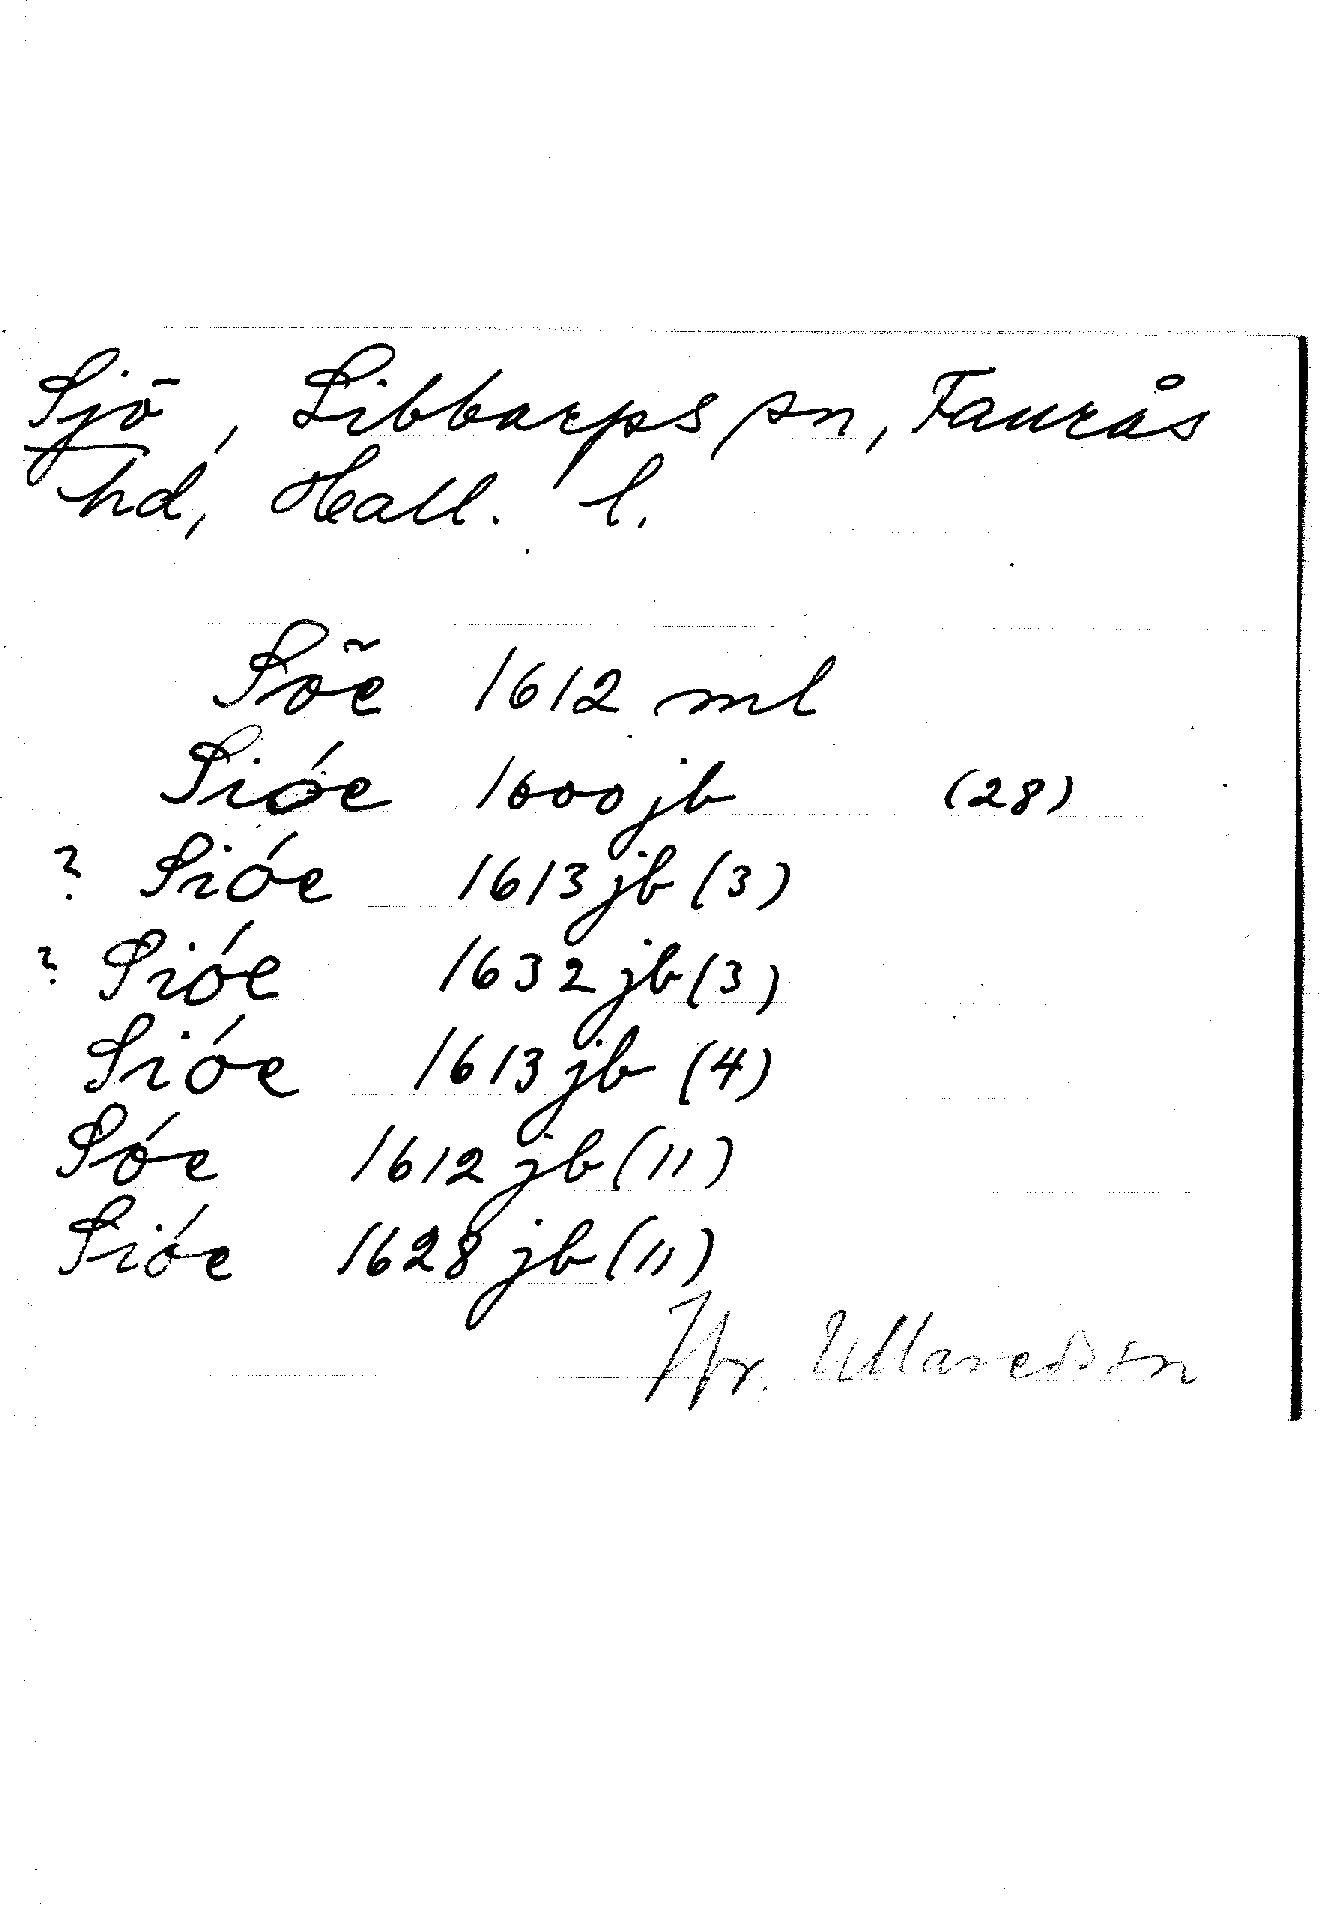 Sjö, Sibbarps sn, Faurås
hd, Hall. l.
Söe 1612 ml
Sióe 1600 jb (28)
? Sióe 1613 jb (3)
? Sióe 1632 jb (3)
Sióe 1613 jb (4)
Sóe 1612 jb (11)
Sióe 1628 jb (11)
Jfr. Ullared sn